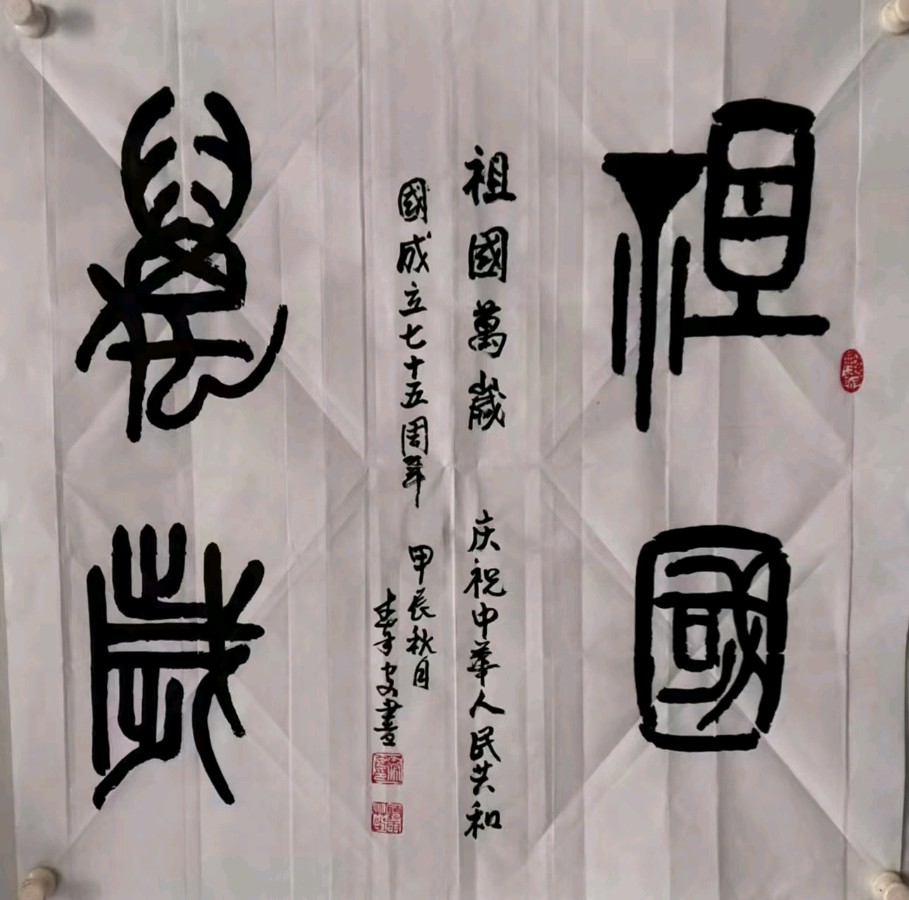 祖國
萬歲
祖國萬歲 庆祝中華人民共和
國成立七十五周年 甲辰秋月
書